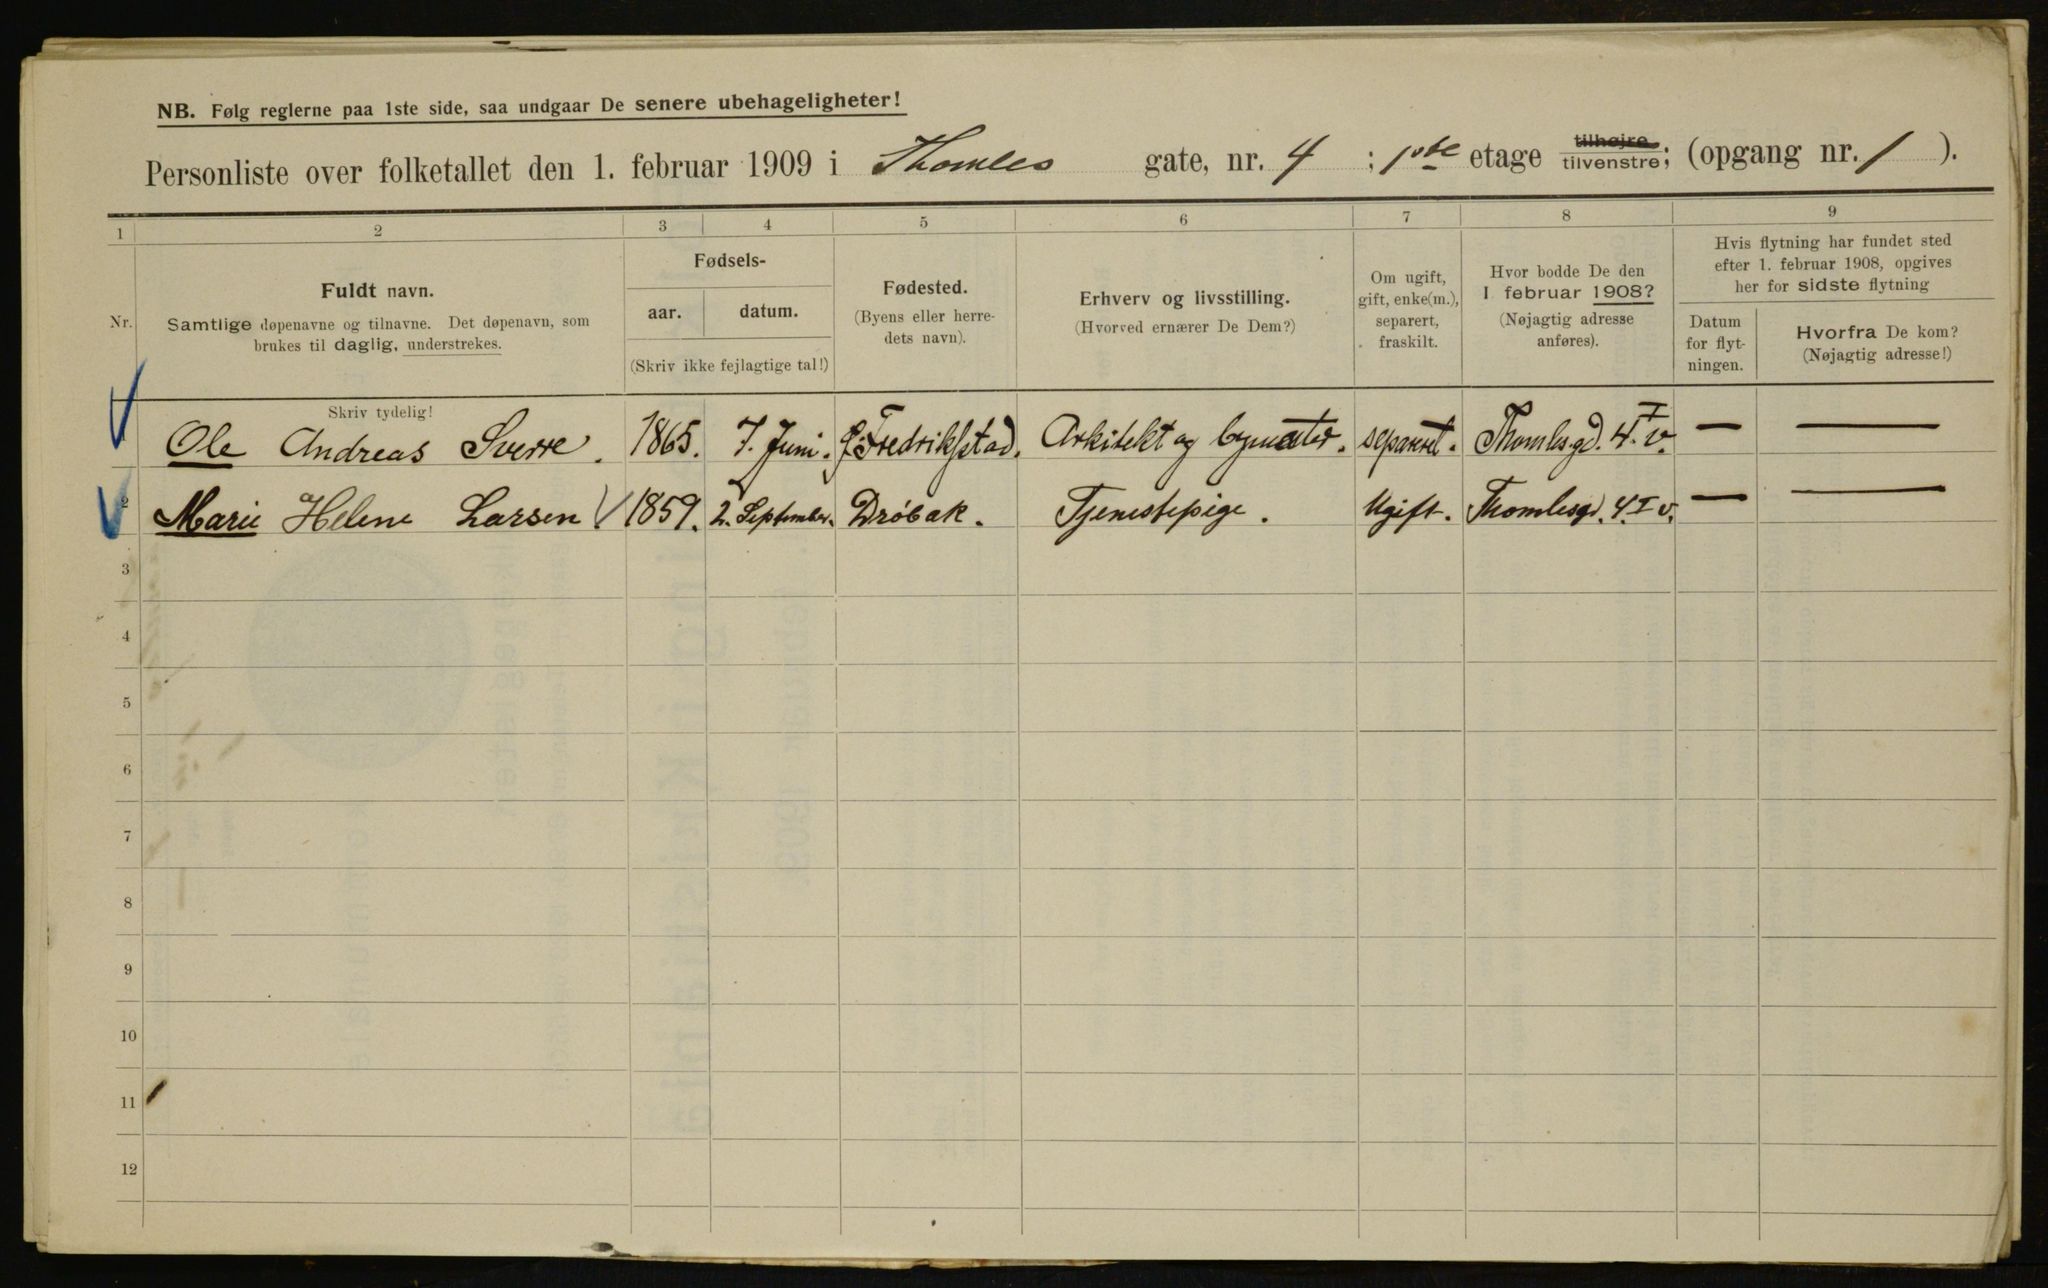 NB. Følg reglerne paa 1ste side, saa undgaar De senere ubehageligheter!
Personliste over folketallet den 1. februar 1909 i Thomles gate, nr. 4 : 1ste etage tilhøjre tilvenstre; (opgang nr. 1 ).
1 2 3 4 5 6 7 8 9
Nr.
Fuldt navn.
Samtlige døpenavne og tilnavne. Det døpenavn, som
brukes til daglig, understrekes.
Fødsels-
aar. datum.
(Skriv ikke fejlagtige tal!)
Fødested.
(Byens eller herre-
dets navn).
Erhverv og livsstilling.
(Hvorved ernærer De Dem?)
Om ugift,
gift, enke(m.),
separert,
fraskilt.
Hvor bodde De den
1 februar 1908?
(Nøjagtig adresse
anføres).
Hvis flytning har fundet sted
efter 1. februar 1908, opgives
her for sidste flytning
Datum
for flyt-
ningen.
Hvorfra De kom?
(Nøjagtig adresse!)
Skriv tydelig!
Ole Andreas Sverre. 1865. 7. Juni. Fredrikstad. Arkitekt og separert. Thomlesgd. 4 I. v. — —
2 Marie Helene Larsen 1859. 2. September. Drøbak. Tjenestepige. Ugift. Thomlesgd. 4 I v. — —
3
4
5
6
7
8
9
10
11
12